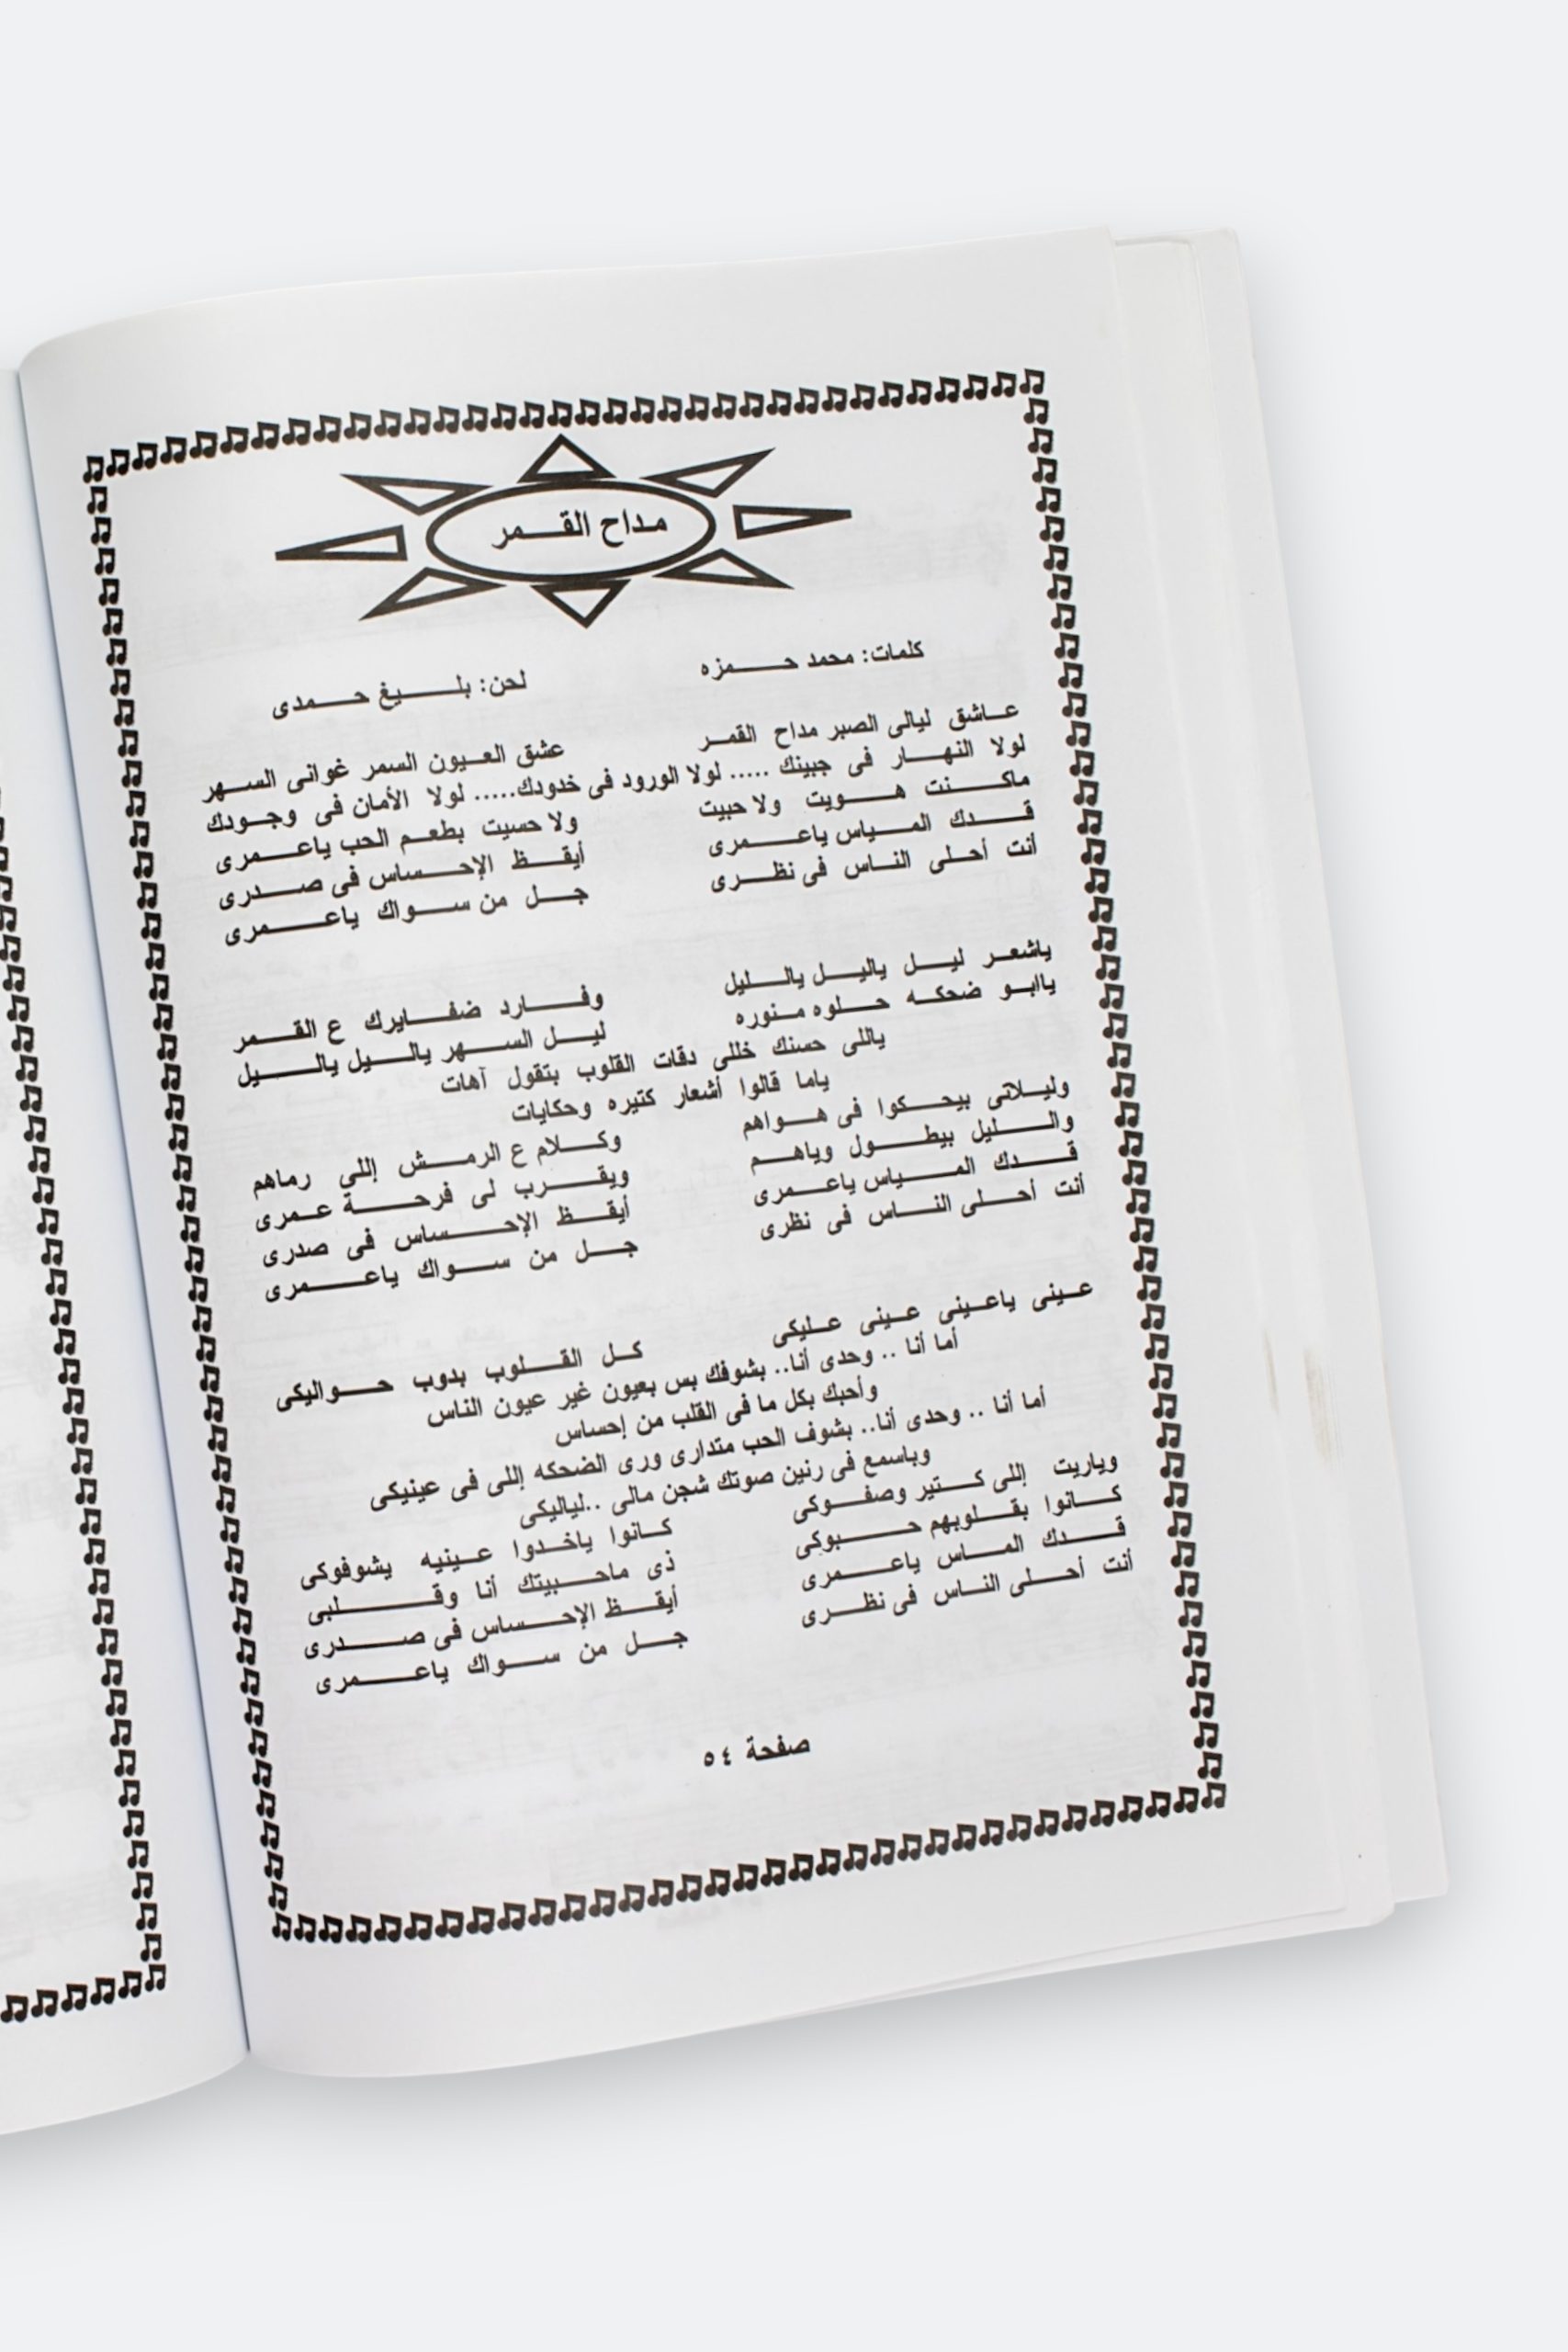 مداح القمر
كلمات: محمد حمزه    لحن: بليغ حمدى
عاشق ليالى الصبر مداح القمر    عشق العيون السمر غوانى السهر
لولا النهار فى جبينك ..... لولا الورود فى خدودك..... لولا الأمان فى وجودك
ماكنت هويت ولا حبيت    ولا حسيت بطعم الحب ياعمرى
قدك المياس ياعمرى    أيقظ الإحساس فى صدرى
أنت أحلى الناس فى نظرى    جل من سواك ياعمرى
ياشعر ليل ياليل يالليل    وفارد ضفايرك ع القمر
ياابو ضحكه حلوه منوره    ليل السهر ياليل ياليل
ياللى حسنك خللى دقات القلوب بتقول آهات
ياما قالوا أشعار كتيره وحكايات
وليلاتى بيحكوا فى هواهم    وكلام ع الرمش إللي رماهم
والليل بيطول وياهم    ويقرب لى فرحة عمرى
قدك المياس ياعمرى    أيقظ الإحساس فى صدرى
أنت أحلى الناس فى نظرى    جل من سواك ياعمرى
عينى ياعينى عينى عليكى    كل القلوب بدوب حواليكى
أما أنا .. وحدى أنا.. بشوفك بس بعيون غير عيون الناس
وأحبك بكل ما فى القلب من إحساس
أما أنا .. وحدى أنا.. بشوف الحب متدارى ورى الضحكه إللى فى عينيكى
وباسمع فى رنين صوتك شجن مالى ..لياليكى
وياريت إللى كتير وصفوكى    كانوا ياخدوا عينيه يشوفوكى
كانوا بقلوبهم حبوكى    ذى ماحبيتك أنا وقلبى
قدك الماس ياعمرى    أيقظ الإحساس فى صدرى
أنت أحلى الناس فى نظرى    جل من سواك ياعمرى
صفحة ٥٤